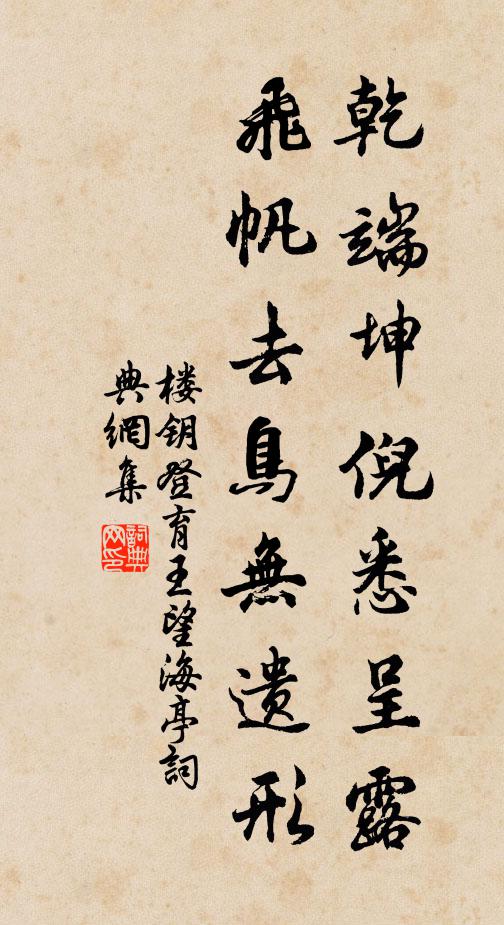 乾端坤倪悉呈露
飛帆去鳥無遺形
楼钥登育王望海亭詞
典網集
詞典
网印